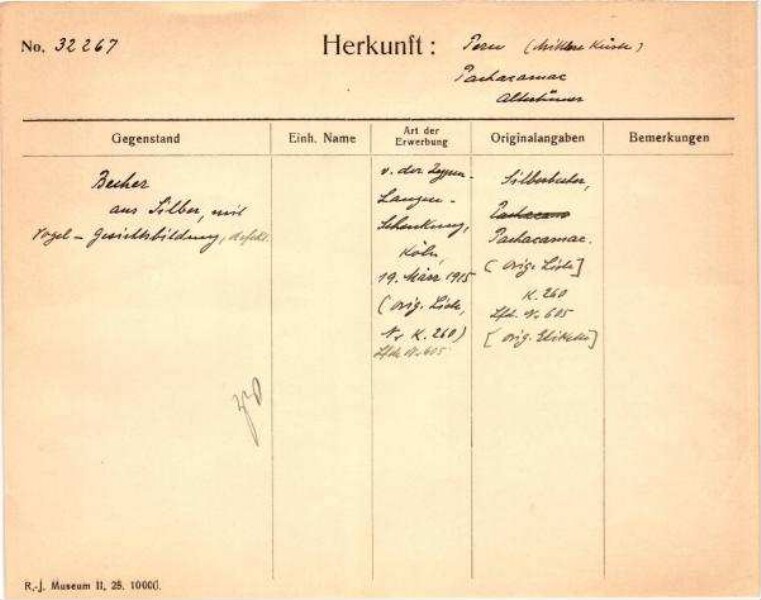 No. 32267
Herkunft: Peru (Mittlere Küste)
Pachacamac
Altertümer
Gegenstand
Einh. Name
Art der Erwerbung
Originalangaben
Bemerkungen
Becher
aus Silber, mit
Vogel - Gesichtsbildung, defekt.
v. der Zypen-
Langen-
Schenkung,
Köln,
19. März 1915
(orig. Liste,
Nr K. 260)
Lfde N. 605
Silberbecher,
Pachacam
Pachacamac.
(orig. Liste]
K. 260
Lfd. N. 605
[orig. Etikette]
R.-J. Museum II, 25. 10000.